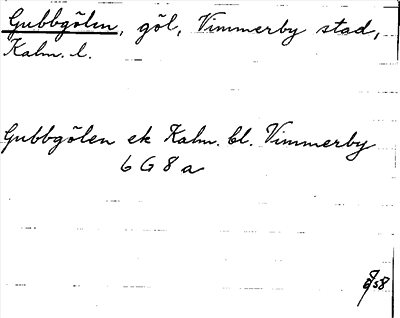 Gubbgölen, göl, Vimmerby stad,
Kalm. l.
Gubbgölen ek Kalm. bl. Vimmerby
6 G 8 a